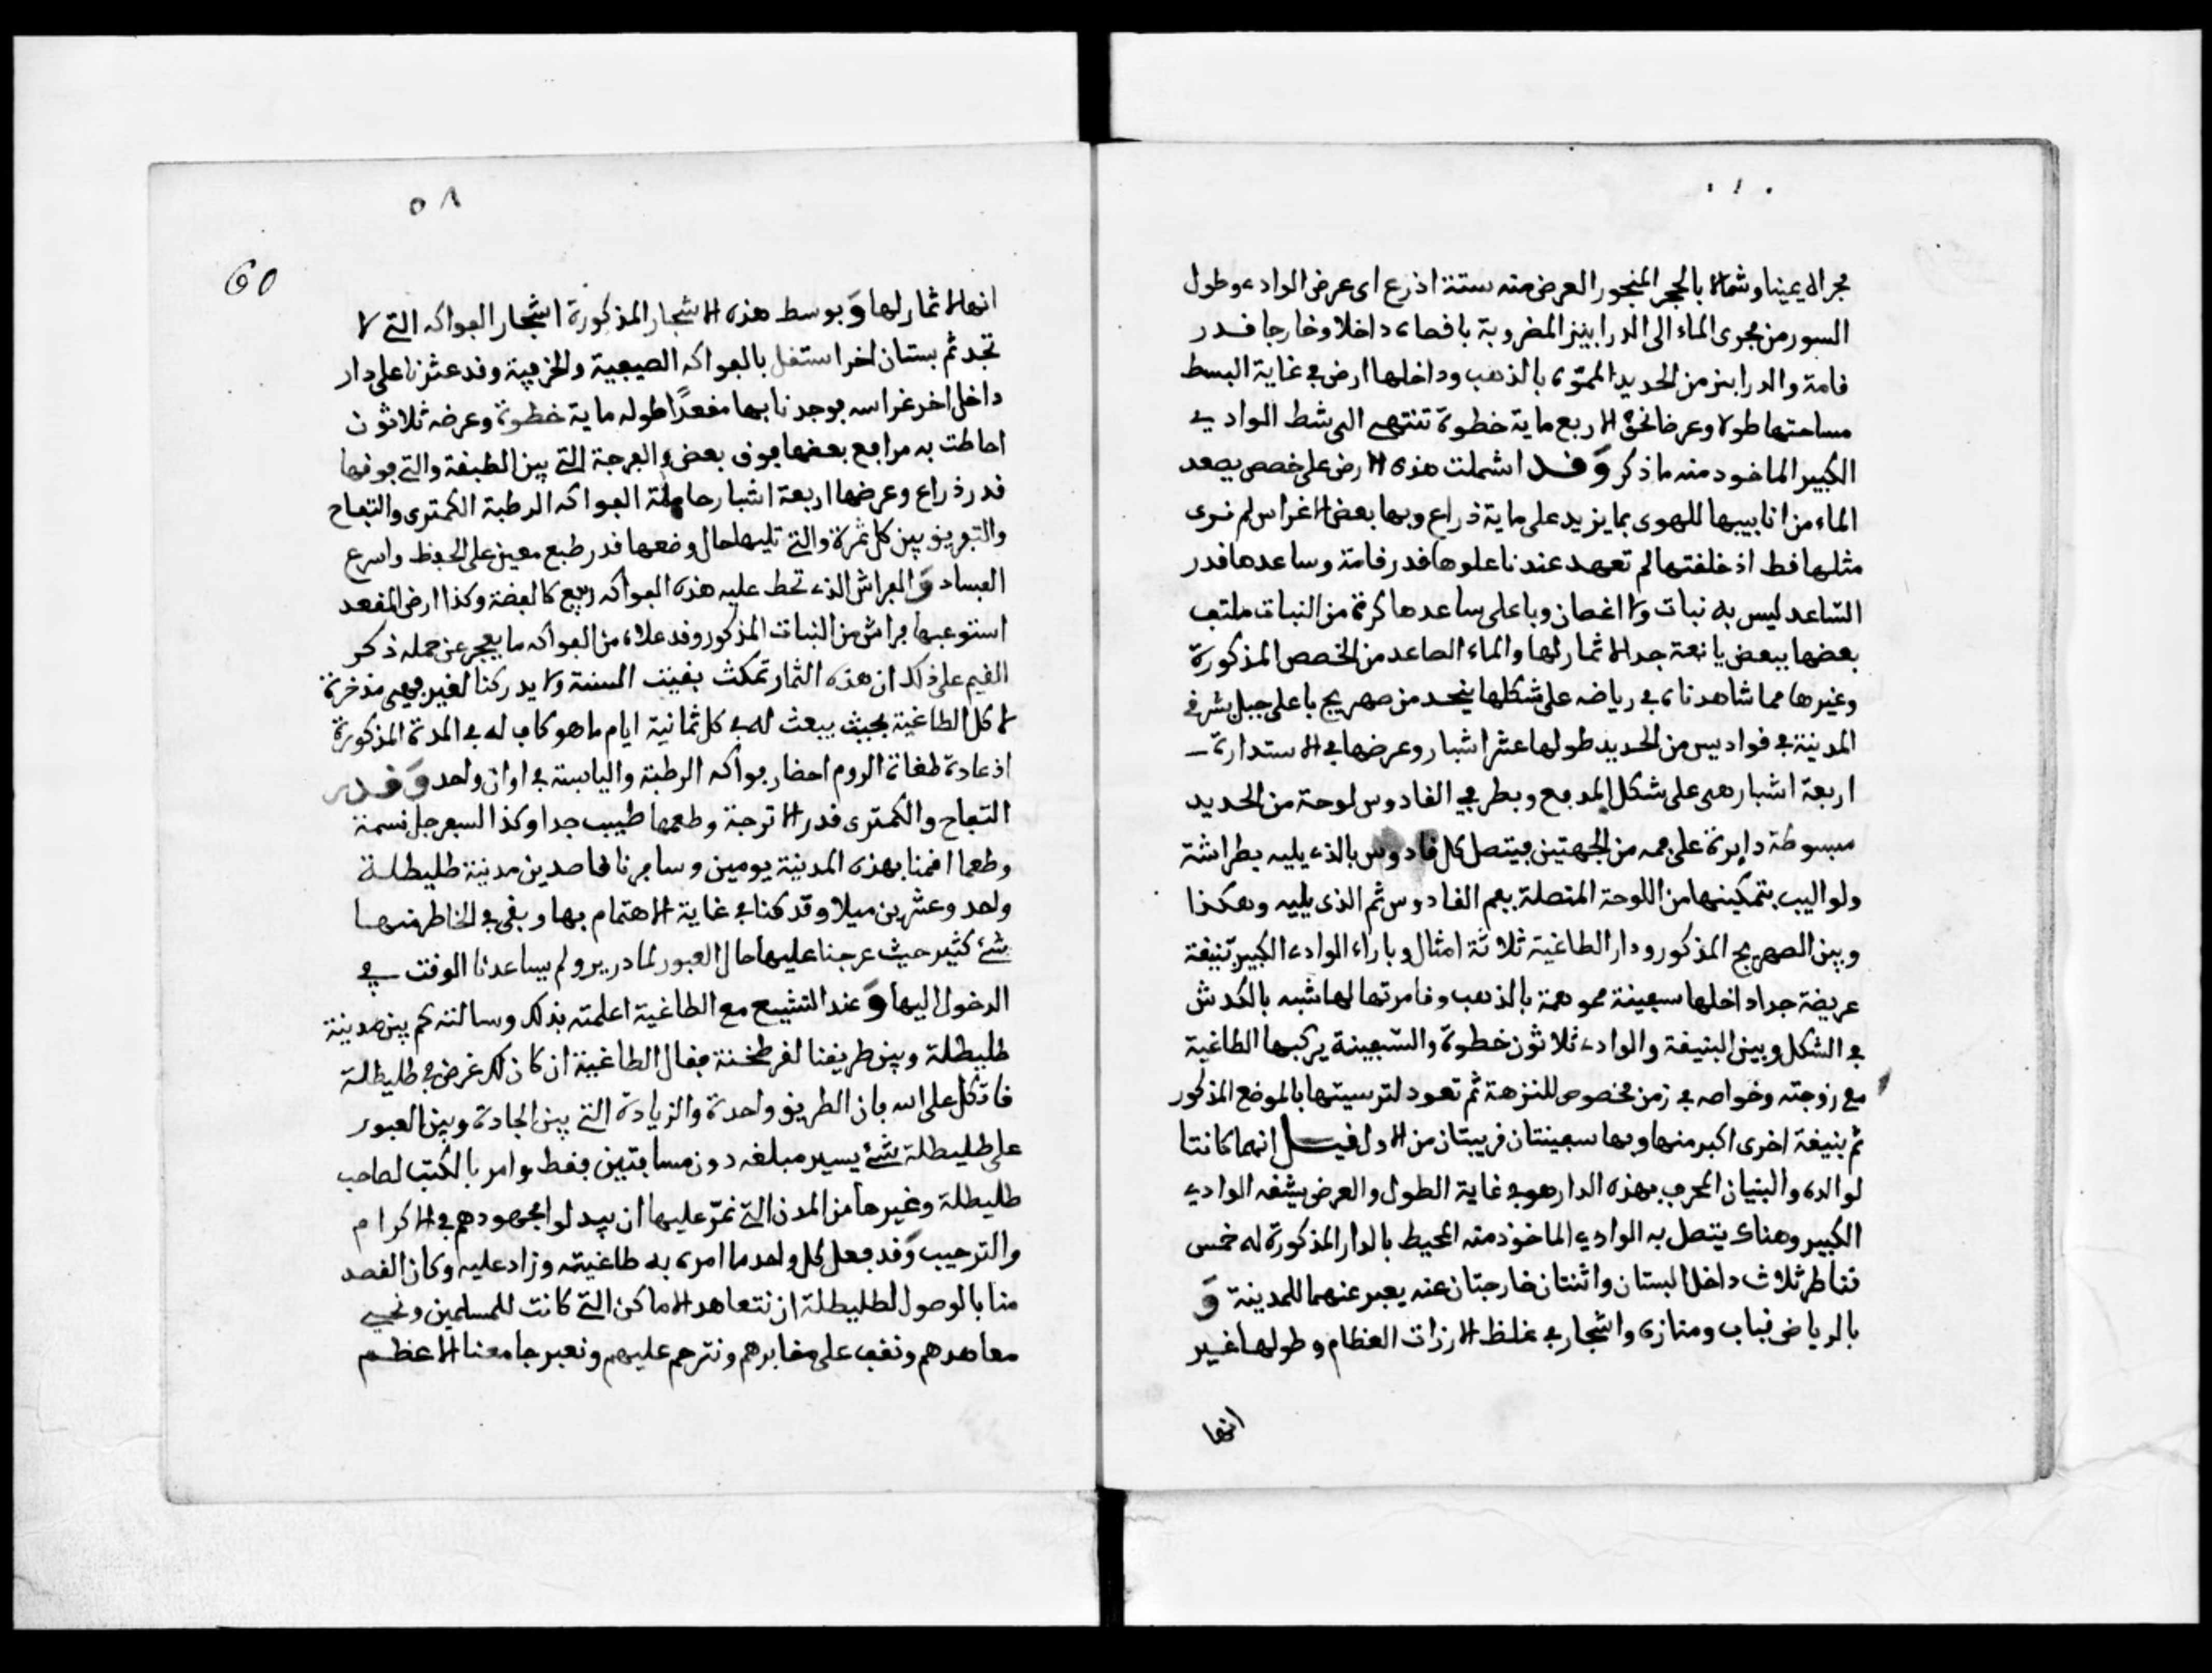 مجراه يمينا وشمالا بالحجر المنجور العرض منه ستة اذرع اى عرض الوادى وطول
السور من مجرى الماء الى الدرابيز المضروبة بافصاه داخلا وخارجا قدر
قامة والدرابيز من الحديد المموه بالذهب وداخلها ارض في غاية البسط
مساحتها طولا وعرضا نحو الاربع ماية خطوة تنتهى الى شط الوادي
الكبير الماخوذ منه ما ذكر وقد اشملت هذه الارض على خصص يصعد
الماء من انابيبها للهوى بما يزيد على ماية ذراع وبها بعض الاغراس لم نرى
مثلها قط اذ خلقتها لم تعهد عندنا علوها قدر قامة وساعدها قدر
الساعد ليس به نبات ولا اغصان وباعلى ساعدها كرة من النبات ملتف
بعضها ببعض يانعة جدا لا ثمار لها والماء الصاعد من الخصص المذكورة
وغيرها مما شاهدناه في رياضه على شكلها ينحد من صهريج باعلى جبل بشرفى
المدينة في قواديس من الحديد طولها عشر اشبار وعرضها في الاستدارة
اربعة اشبار هى على شكل المدفع وبطرفي القادوس لوحة من الحديد
مبسوطة دايرة على فمه من الجهتين فيتصل كل قادوس بالذى يليه بطراشة
ولواليب بتمكينها من اللوحة المتصلة بفم القادوس ثم الذى يليه وهكذا
وبين الصهريج المذكور ودار الطاغية ثلاثة امثال وبازاء الوادى الكبير بنيقة
عريضة جدا داخلها سفينة مموهة بالذهب وقامرتها لها شبه بالكدش
في الشكل وبين البنيقة والوادى ثلاثون خطوة والسفينة يركبها الطاغية
مع زوجته وخواصه في زمن مخصوص للنزهة ثم تعود لترسيتها بالموضع المذكور
ثم بنيقة اخرى اكبر منها وبها سفينتان قريبتان من الاول قيل انهما كانتا
لوالده والبنيان المحرف بهذه الدار هو في غاية الطول والعرض يشقه الوادي
الكبير وهناك يتصل به الوادي الماخوذ منه المحيط بالدار المذكورة له خمس
قناطر ثلاث داخل البستان واثنتان خارجتان عنه يعبر عنهما للمدينة و
بالرياض قباب ومنازه واشجار في غلظ الارزات العظام وطولها غير
انها
٥٨
60
انها لا ثمار لها وبوسط هذه الاشجار المذكورة اشجار الفواكه التي لا
تجد ثم بستان اخر استقل بالفواكه الصيفية والخرفية وقد عثرنا على دار
داخل اخر غراسه فوجدنا بها مقعدا طوله ماية خطوة وعرضه ثلاثون
احاطت به مرافع بعضها فوق بعض والفرجة التي بين الطبقة والتي فوقها
قدر ذراع وعرضها اربعة اشبار حاملة الفواكه الرطبة الكمترى والتفاح
والتفريق بين كل ثمرة والتي تليها حال وضعها قدر طبع معين على الحفظ واسرع
الفساد والفراش الذى تحط عليه هذه الفواكه رفيع كالفضة وكذا ارض المقعد
استوعبها فراش من النبات المذكور وقد علاه من الفواكه ما يعجز عن حمله ذكر
القيم على ذلك ان هذه الثمار تمكث بقيت السنة ولا يدركنا لغير فهى مدخرة
لاكل الطاغية بحيث يبعث له في كل ثمانية ايام ما هو كاف له في المدة المذكورة
اذ عادة طغاة الروم احضار فواكه الرطبة واليابسة في اوان واحد وقدر
التفاح والكمترى قدر الاترجة وطعمها طيب جدا وكذا السفرجل نسمة
وطعما اقمنا بهذه المدينة يومين وسافرنا قاصدين مدينة طليطلة
واحد وعشرين ميلا وقد كنا في غاية الاهتمام بها وبقى في الخاطر منها
شئ كثير حيث عرجنا عليها حال العبور لمادريد ولم يساعدنا الوقت في
الدخول اليها وعند التشييع مع الطاغية اعلمته بذلك وسالته كم بين مدينة
طليطلة وبين طريقنا لقرطخنة فقال الطاغية ان كان لك غرض في طليطلة
فاتكل على الله فان الطريق واحدة والزيادة التي بين الجادة وبين العبور
على طليطلة شئ يسير مبلغه دون مسافتين فقط وامر بالكتب لصاحب
طليطلة وغيرها من المدن التي نمر عليها ان يبدلوا مجهودهم في الاكرام
والترحيب وقد فعل كل واحد ما امره به طاغيته وزاد عليه وكان القصد
منا بالوصول لطليطلة ان نتعاهد الاماكن التي كانت للمسلمين ونحيي
معاهدهم ونقف على مقابرهم ونترحم عليهم ونعبر جامعنا الاعظم